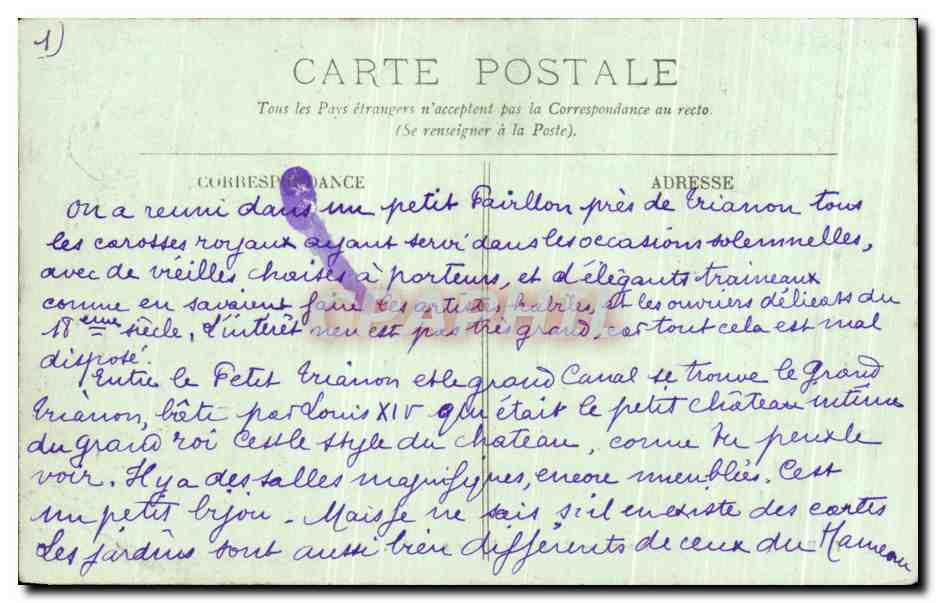 1)
CARTE POSTALE
Tous les Pays étrangers n'acceptent pas la Correspondance au recto.
(Se renseigner à la Poste).
CORRESPONDANCE
ADRESSE
On a reuni dans un petit Pavillon près de Trianon tous
les carosses royaux ayant servi dans les occasions solemnelles,
avec de vieilles chaises à porteurs, et d'élégants traineaux
comme en savaient faire les artistes habiles et les ouvriers délicats du
18ème siècle, L'intérêt n'en est pas très grand, car tout cela est mal
disposé.
Entre le Petit Trianon et le grand Canal se trouve le Grand
Trianon, bâti par Louis XIV qui était le petit château intime
du grand roi C'est le style du chateau, comme tu peux le
voir. Il y a des salles magnifiques, encore meublées. C'est
un petit bijou. Mais je ne sais s'il en existe des cartes
Les jardins sont aussi bien différents de ceux du Hameau